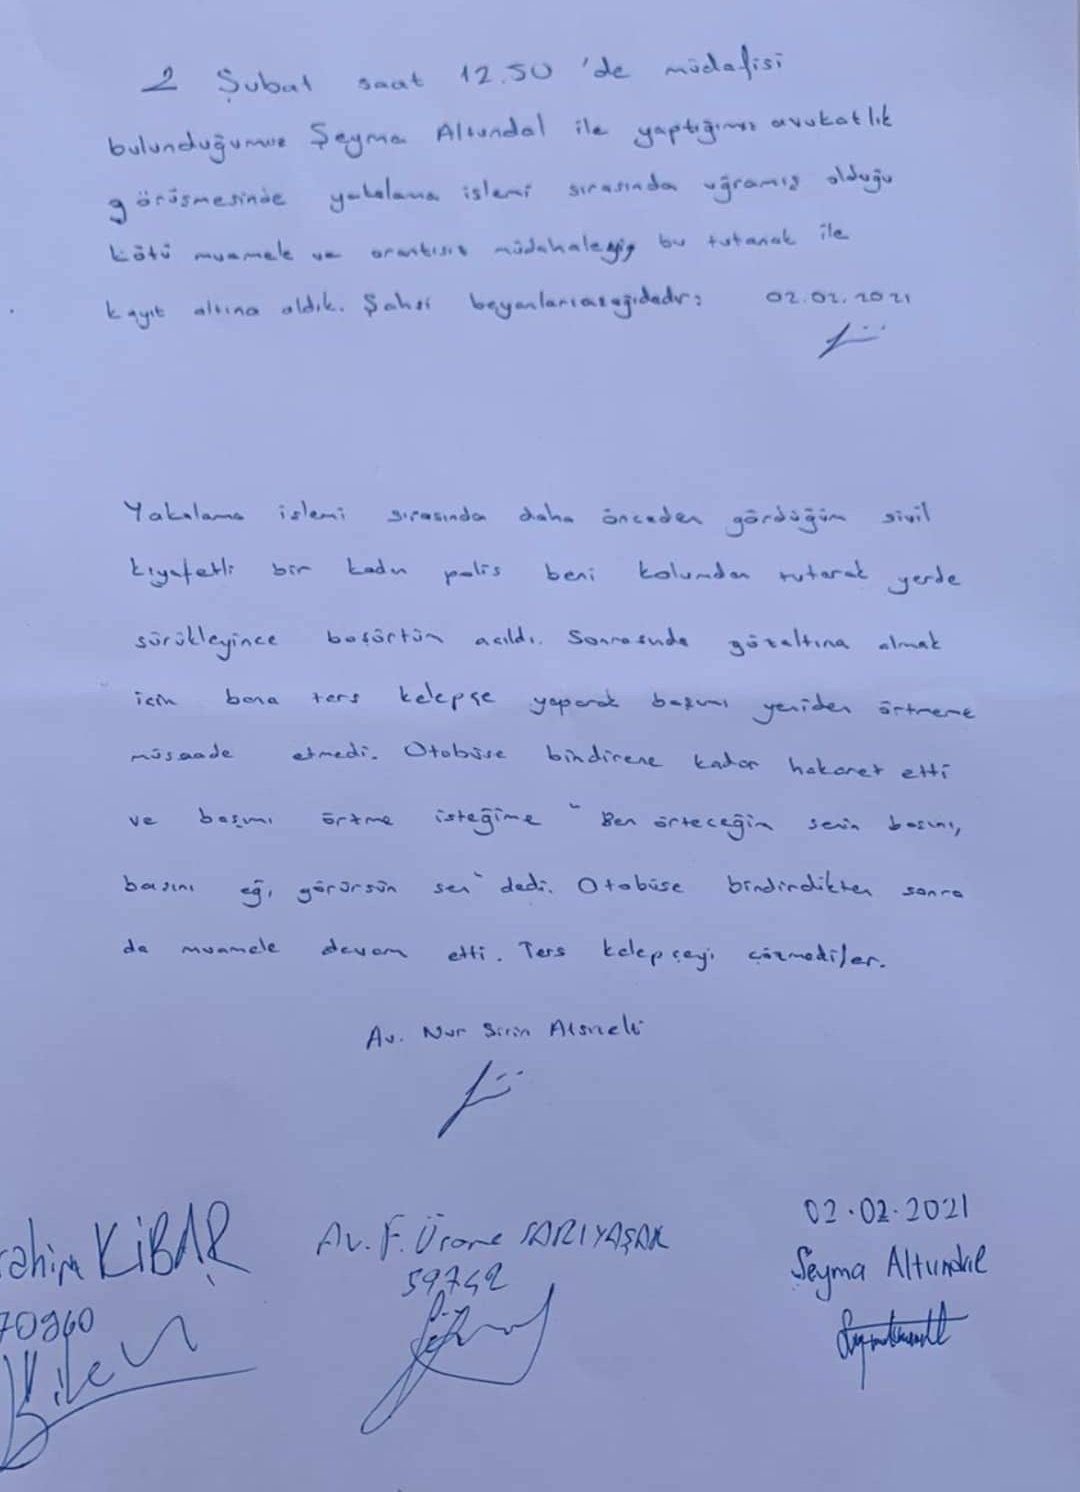 2 Şubat saat 12.50 'de müdafisi
bulunduğumuz Şeyma Altundal ile yaptığımız avukatlık
görüşmesinde yakalama işlemi sırasında uğramış olduğu
kötü muamele ve orantısız müdahaleyi bu tutanak ile
kayıt altına aldık. Şahsi beyanları aşağıdadır: 02.02.2021
Yakalama işlemi sırasında daha önceden gördüğüm sivil
kıyafetli bir kadın polis beni kolumdan tutarak yerde
sürükleyince başörtüm açıldı. Sonrasında gözaltına almak
için bana ters kelepçe yaparak başımı yeniden örtmeme
müsaade etmedi. Otobüse bindirene kadar hakaret etti
ve başımı örtme isteğime "Ben örteceğim senin başını,
başını eğ, görürsün sen" dedi. Otobüse bindirdikten sonra
da muamele devam etti. Ters kelepçeyi çözmediler.
Av. Nur Sirin
KİBAR
Av. F. SARIYAŞAR
59742
02.02.2021
Şeyma